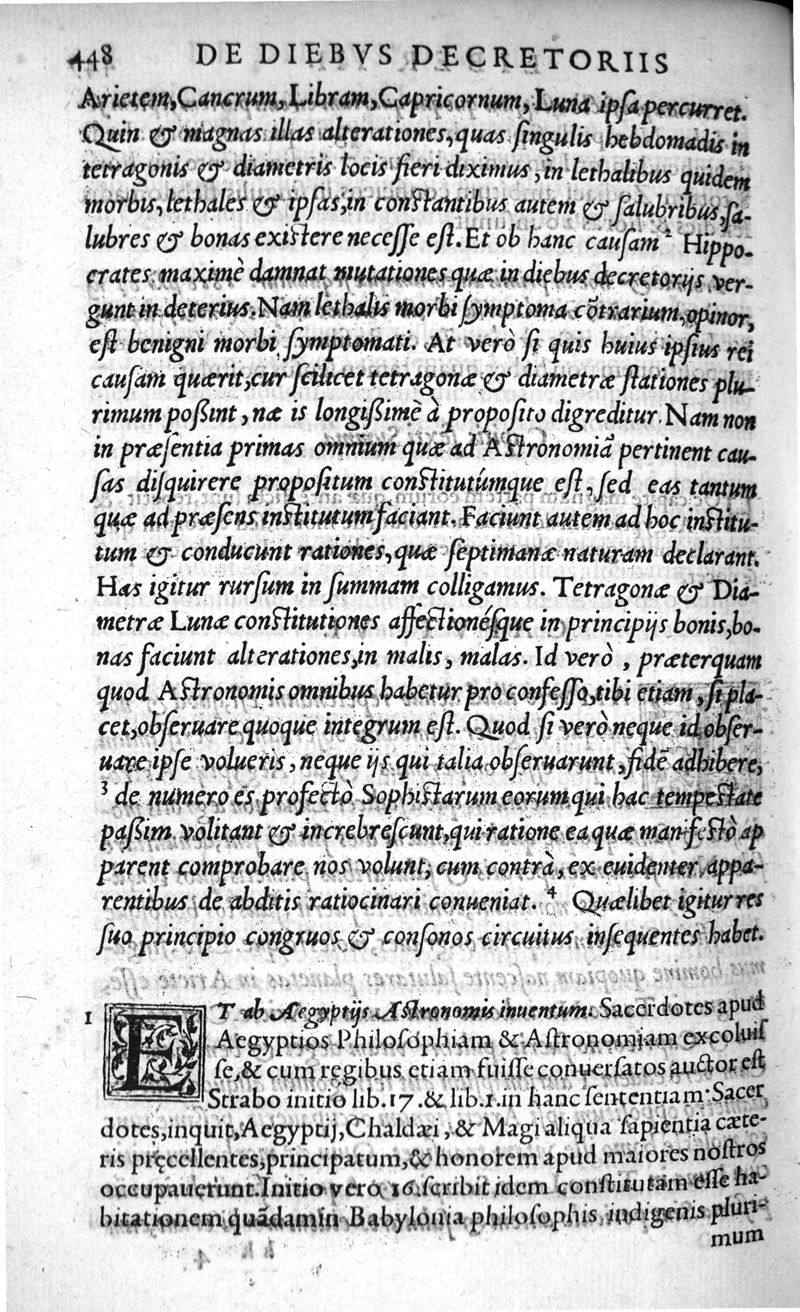 448 DE DIEBVS DECRETORIIS
Arietem, Cancrum, Libram, Capricornum, Luna ipſa percurret.
Quin & magnas illas alterationes, quas ſingulis hebdomadis in
tetragonis & diametris locis fieri diximus, in lethalibus quidem
morbis, lethales & ipſas, in conſtantibus autem & ſalubribus, ſa-
lubres & bonas exiſtere neceſſe eſt. Et ob hanc cauſam ² Hippo-
crates maximè damnat mutationes quæ in diebus decretorijs ver-
gunt in deterius. Nam lethalis morbi ſymptoma cõtrarium, opinor,
eſt benigni morbi ſymptomati. At verò ſi quis huius ipſius rei
cauſam quærit, cur ſcilicet tetragonæ & diametræ ſtationes plu-
rimum poßint, næ is longißimè à propoſito digreditur. Nam non
in præſentia primas omnium quæ ad Aſtronomiã pertinent cau-
ſas diſquirere propoſitum conſtitutúmque eſt, ſed eas tantum
quæ ad præſens inſtitutum faciant. Faciunt autem ad hoc inſtitu-
tum & conducunt rationes, quæ ſeptimanæ naturam declarant.
Has igitur rurſum in ſummam colligamus. Tetragonæ & Dia-
metræ Lunæ conſtitutiones affectionéſque in principijs bonis, bo-
nas faciunt alterationes, in malis, malas. Id verò, præterquam
quod Aſtronomis omnibus habetur pro confeſſo, tibi etiam, ſi pla-
cet, obſeruare quoque integrum eſt. Quod ſi verò neque id obſer-
uare ipſe volueris, neque ijs qui talia obſeruarunt, fidẽ adhibere,
³ de numero es profectò Sophiſtarum eorum qui hac tempeſtate
paßim volitant & increbreſcunt, qui ratione ea quæ manifeſtò ap
parent comprobare nos volunt, cum contrà, ex euidenter appa-
rentibus de abditis ratiocinari conueniat. ⁴ Quælibet igitur res
ſuo principio congruos & conſonos circuitus inſequentes habet.
1 ET ab Aegyptijs Aſtronomis inuentum. Sacerdotes apud
Aegyptios Philoſophiam & Aſtronomiam excoluiſ
ſe, & cum regibus etiam fuiſſe conuerſatos auctor eſt
Strabo initio lib. 17. & lib. 1. in hanc ſententiam: Sacer
dotes, inquit, Aegyptij, Chaldæi, & Magi aliqua ſapientia cæte-
ris pręcellentes, principatum, & honorem apud maiores noſtros
occupauerunt. Initio vero 16. ſcribit idem conſtitutam eſſe ha-
bitationem quãdam in Babylonia philoſophis, indigenis pluri-
mum